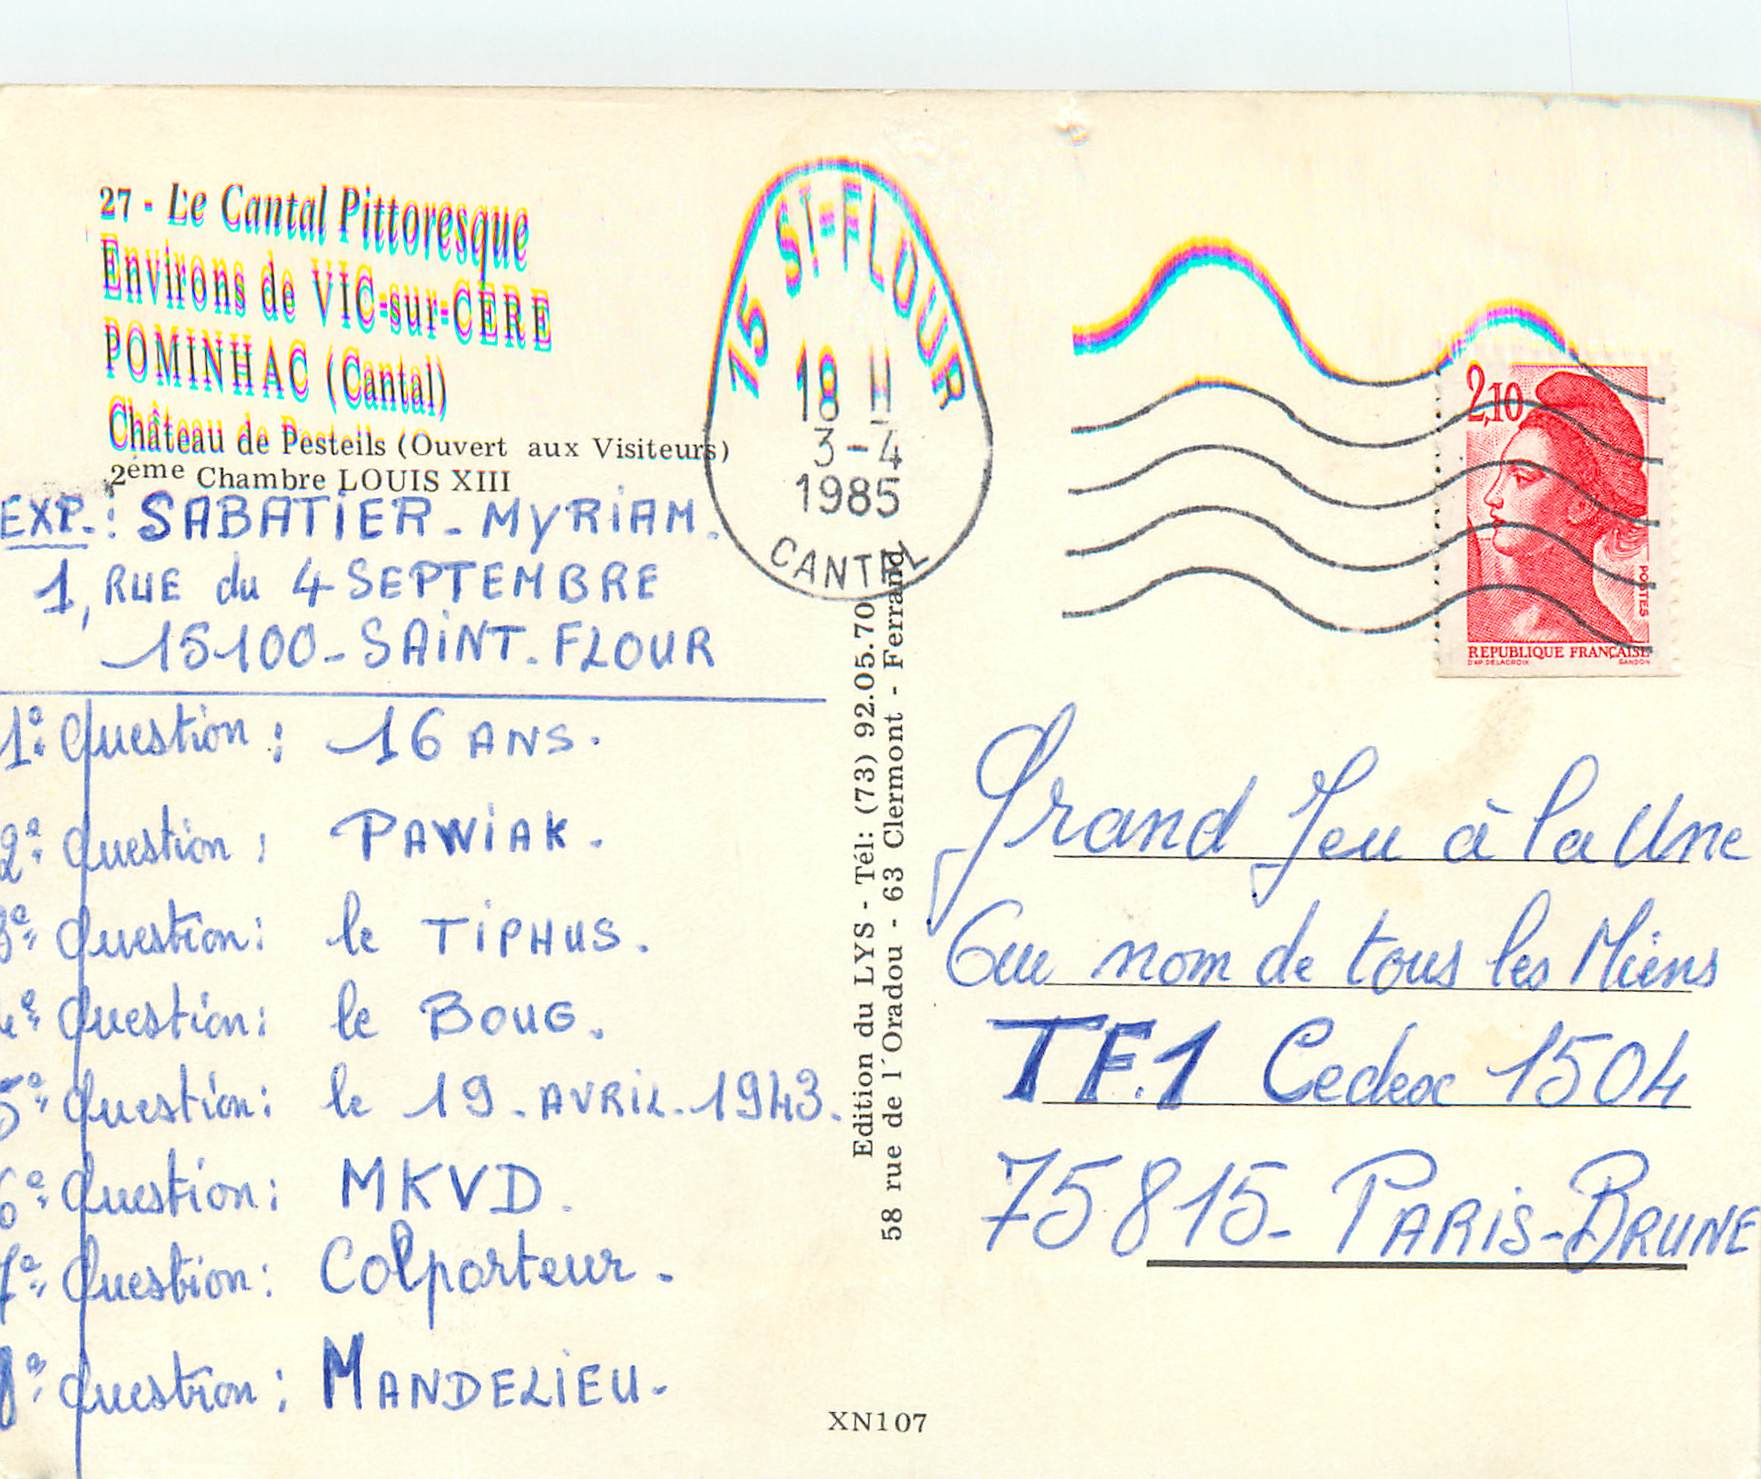 27 - Le Cantal Pittoresque
Environs de VIC-sur-CERE
POMINHAC (Cantal)
Château de Pesteils (Ouvert aux Visiteurs)
2eme Chambre LOUIS XIII
EXP.: SABATIER - MYRIAM.
1, RUE du 4 SEPTEMBRE
15100 - SAINT. FLOUR
1º: Question : 16 ANS.
2º: Question : PAWIAK.
3º: Question : le TIPHUS.
4º: Question : le BOUG.
5º: Question : le 19. AVRIL. 1943.
6º: Question : MKVD.
7º: Question : Colporteur.
8º: Question : MANDELIEU.
15 ST-FLOUR
18 H
3-4
1985
CANTAL
Edition du LYS - Tél: (73) 92.05.70
58 rue de l'Oradou - 63 Clermont - Ferrand
2,10
POSTES
REPUBLIQUE FRANÇAISE
D'AP. DELACROIX GANDON
Grand Jeu à la Une
Au nom de tous les Miens
TF.1 Cedex 1504
75815 - PARIS-BRUNE
XN107